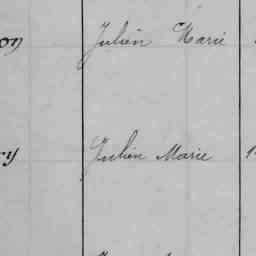 Julien Marie
Julien Marie